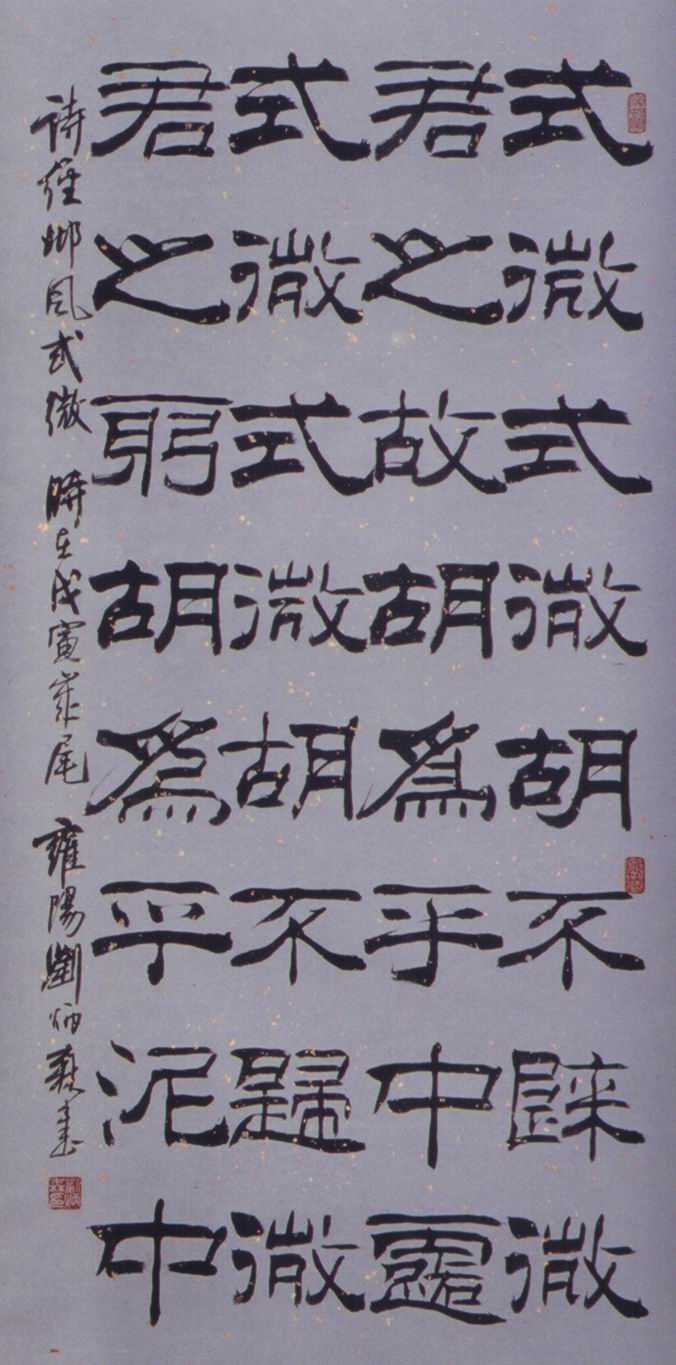 式微式微胡不歸微
君之故胡爲乎中露
式微式微胡不歸微
君之躬胡爲乎泥中
詩經邶風式微 時在戊寅歲尾 雍陽劉炳森書